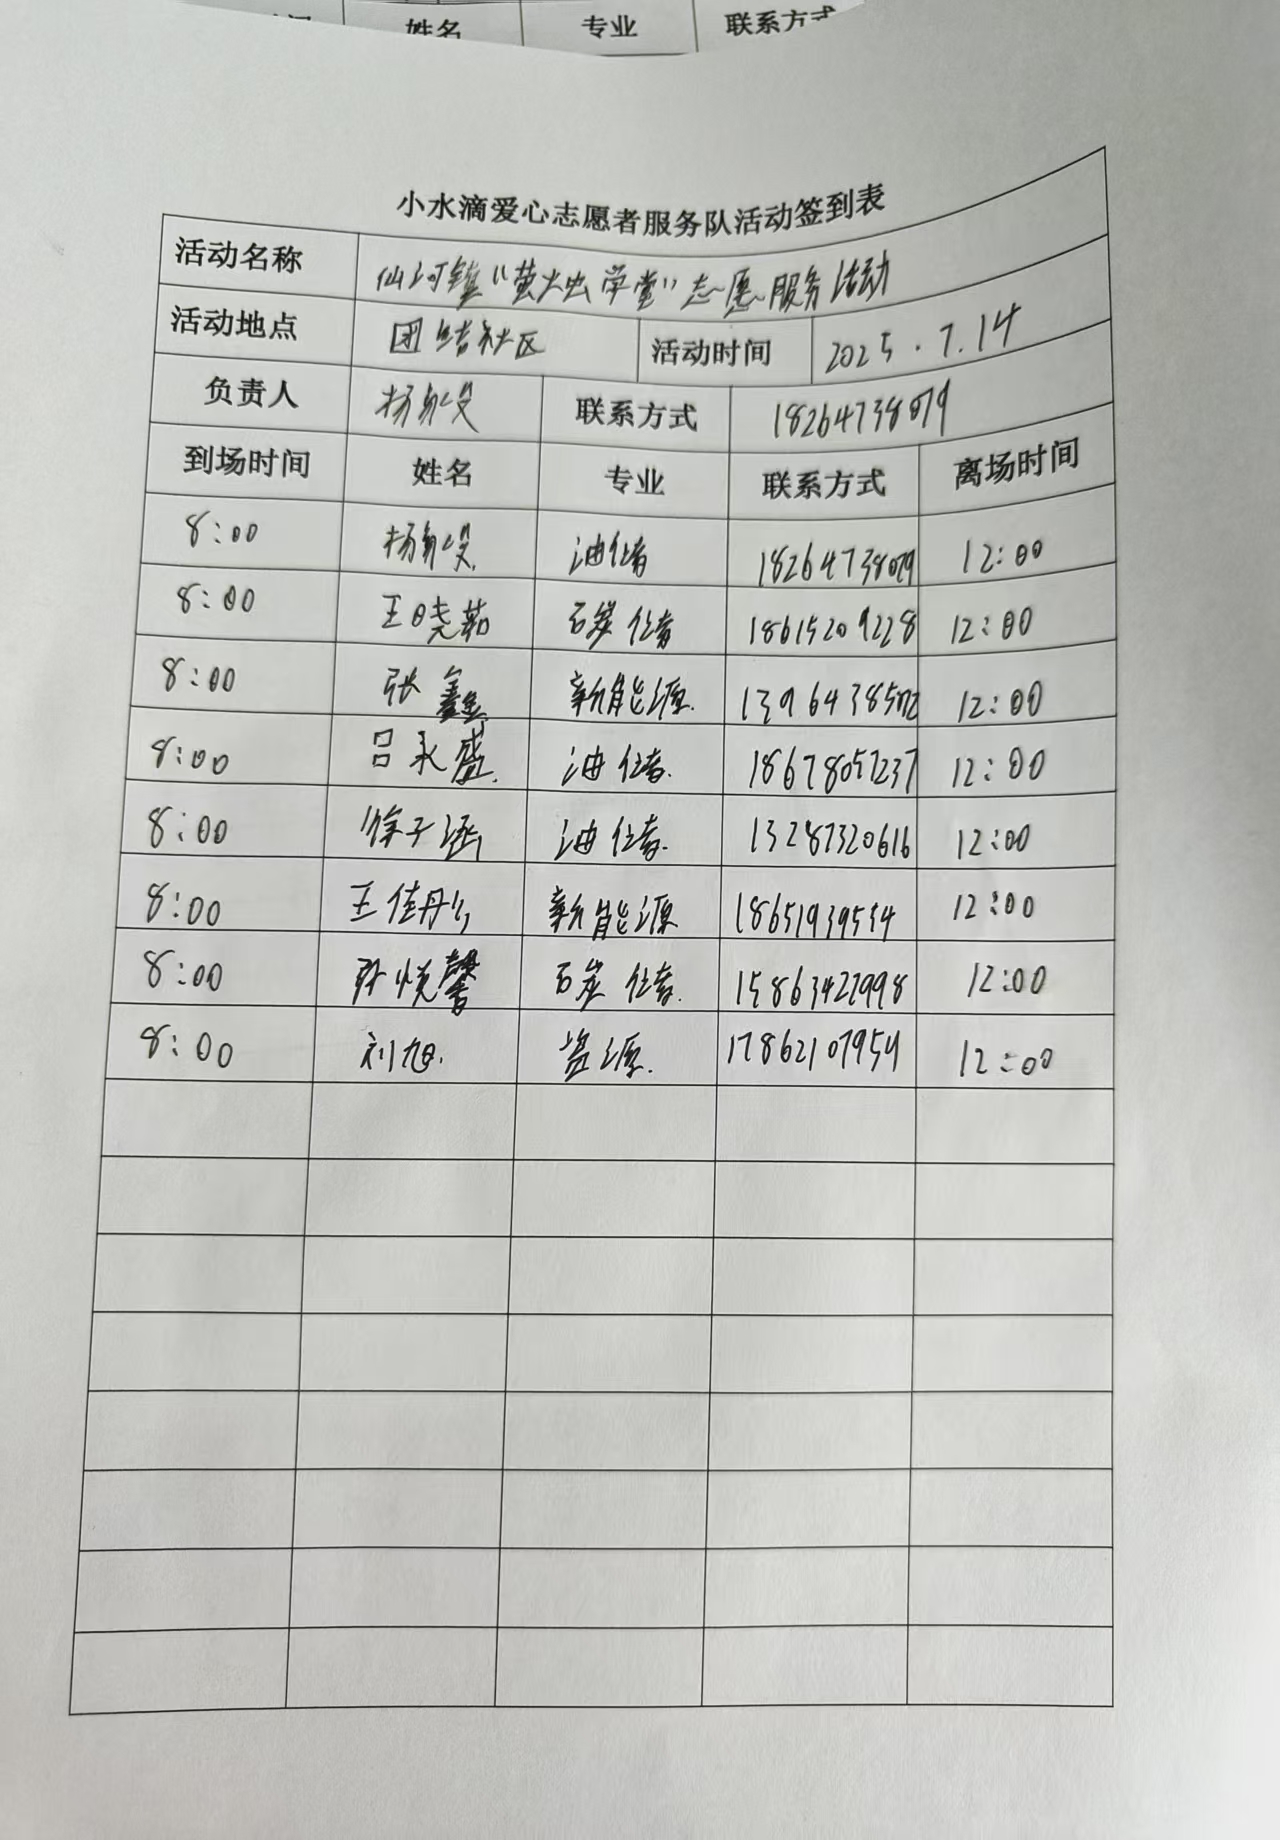 姓名 专业 联系方式
小水滴爱心志愿者服务队活动签到表
活动名称 仙河镇“萤火虫学堂”志愿服务活动
活动地点 团结社区 活动时间 2025.7.14
负责人 杨 联系方式 18264738079
到场时间 姓名 专业 联系方式 离场时间
8:00 杨 油储 18264738079 12:00
8:00 王晓茹 石炭储 18615209228 12:00
8:00 张鑫 新能源 12:00
8:00 吕永盛 油储 18678057237 12:00
8:00 徐子涵 油储 13287320616 12:00
8:00 王佳 新能源 18651939554 12:00
8:00 悦馨 石炭储 12:00
8:00 刘旭 资源 17862107954 12:00